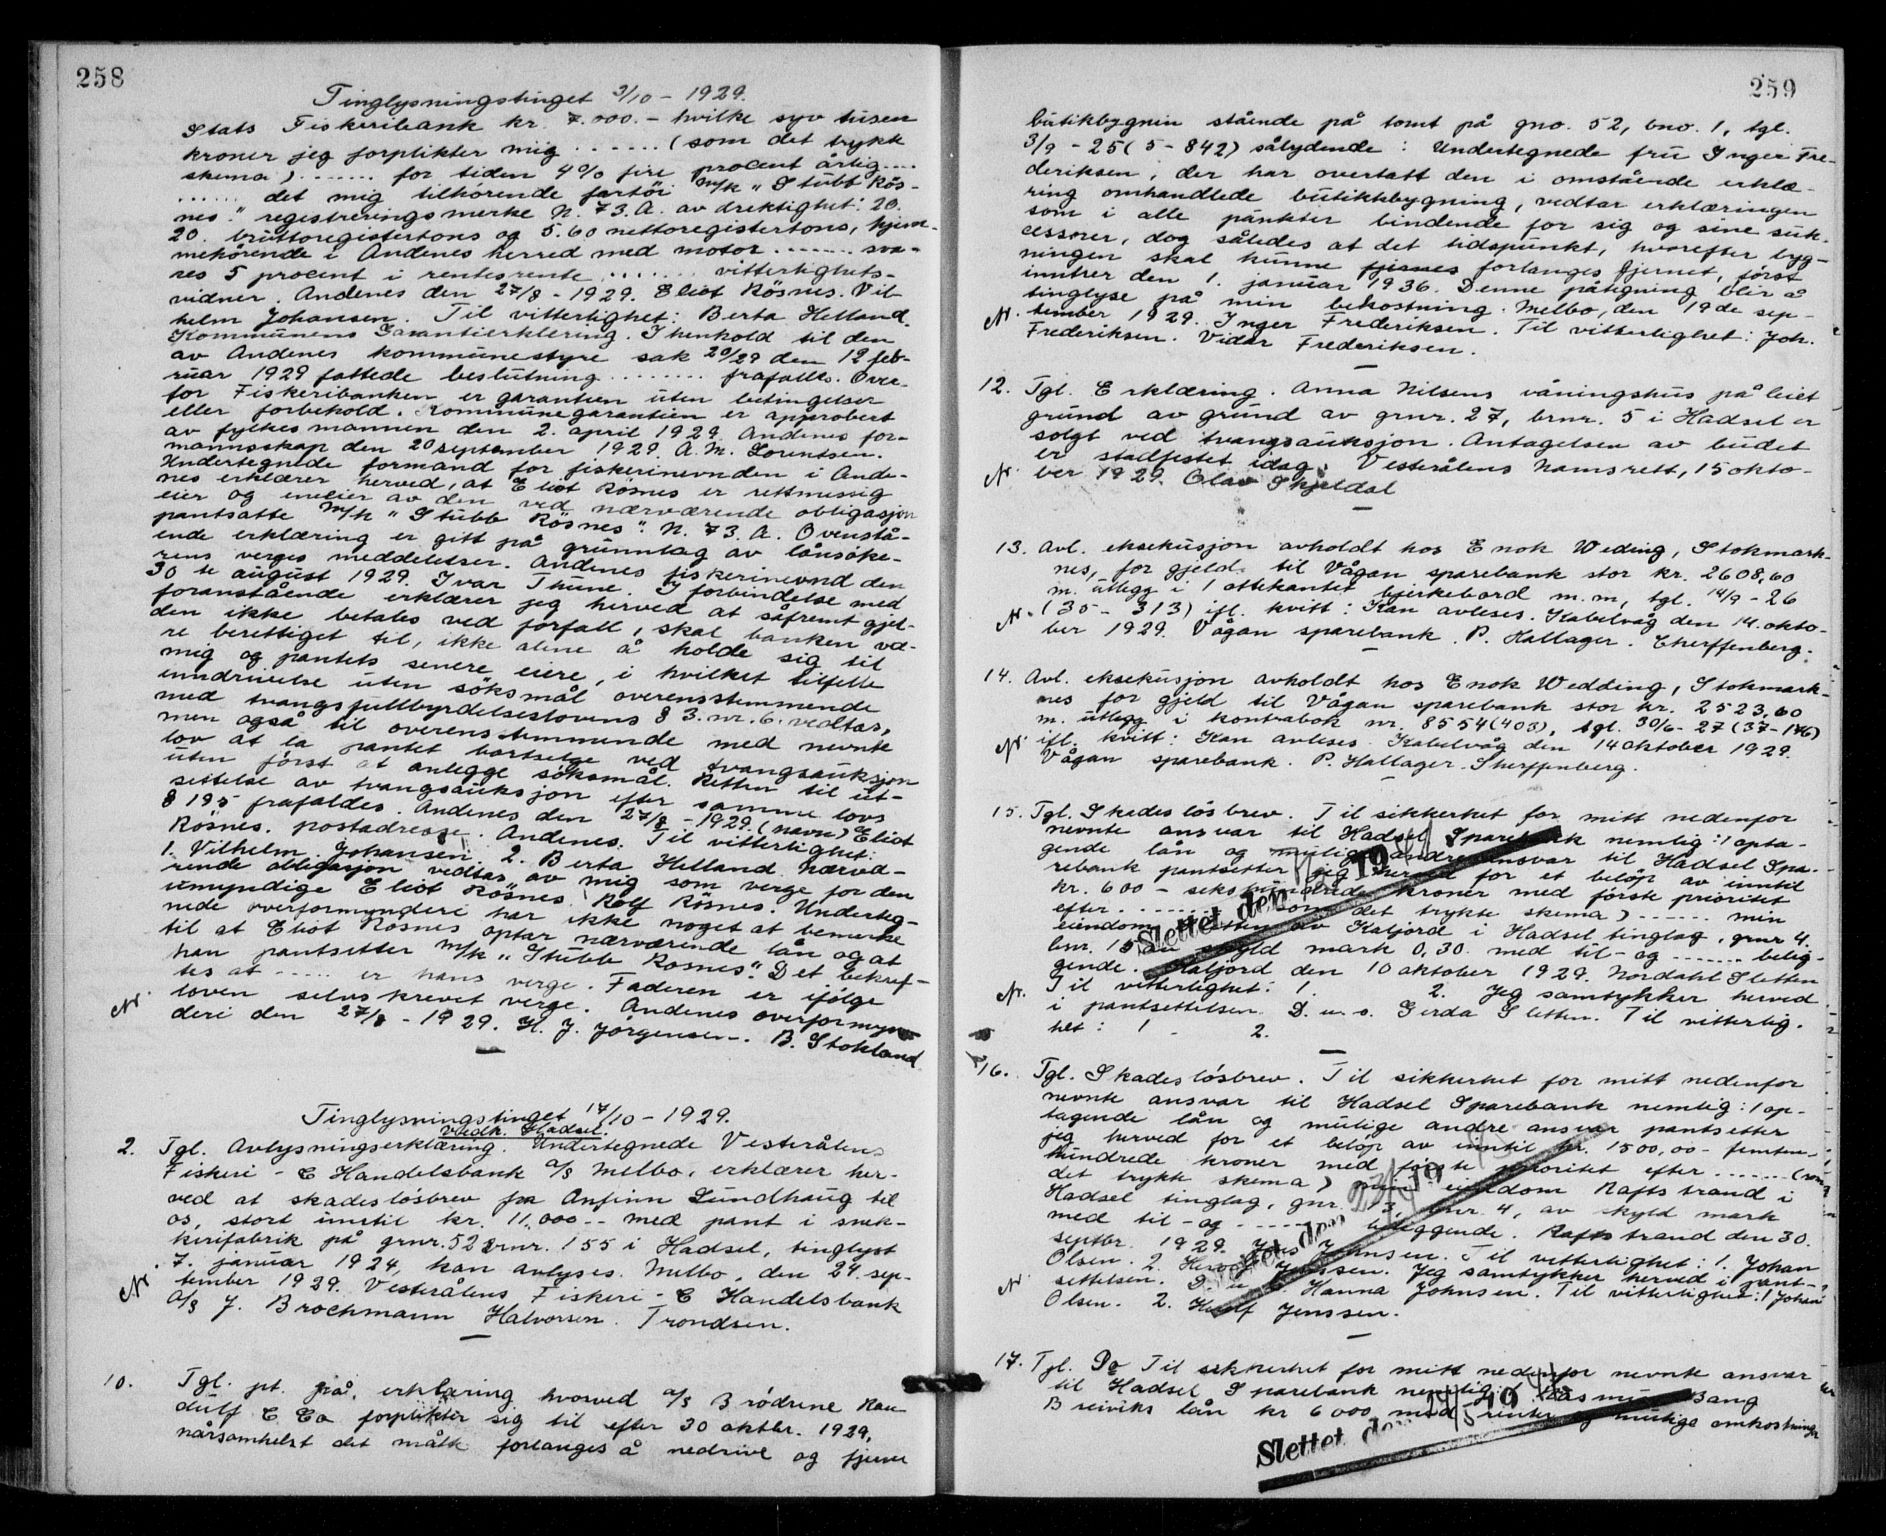 258
Tinglysningstinget 3/10 - 1929.
Stats Fiskeribank kr. 7.000.- hvilke syv tusen
kroner jeg forplikter mig ...... (som det trykk
skema) ....... for tiden 4% fire procent årlig....
...... det mig tilhörende fartöi m/k "Stubb Rös-
nes." registreringsmerke N. 73. A. av drektighet: 20.
20. bruttoregistertons og 5.60 nettoregistertons, hjem-
mehörende i Andenes herred med motor ....... sva-
res 5 procent i rentesrente ....... vitterlighets-
vidner. Andenes den 27/8 - 1929. Eliot Rösnes. Vil-
helm Johansen. Til vitterlighet: Berta Helland.
Kommunens Garantierklering. I henhold til den
av Andenes kommunestyre sak 20/29 den 19 feb-
ruar 1929 fattede beslutning ........ frafalles. Over-
for Fiskeribanken er garantien uten betingelser
eller forbehold. Kommunegarantien er approbert
av fylkesmannen den 2. april 1929. Andenes for-
mannsskap den 20 september 1929. A. M. Lorentsen.
Undertegnede formand for fiskerinevnden i Ande-
nes erklærer herved, at Eliot Rösnes er rettmessig
eier og eneeier av den ved nærværende obligasjon
pantsatte m/k "Stubb Rösnes". N. 73. A. Ovenstå-
ende erklæring er gitt på grunnlag av lånsöke-
rens verges meddelelser. Andenes fiskerinevnd den
30 te august 1929. Ivar Thune. I forbindelse med
foranstående erklærer jeg herved at såfremt gjel-
den ikke betales ved forfall, skal banken væ-
re berettiget til, ikke alene å holde sig til
mig og pantets senere eiere, i hvilket tilfelle
inndrivelse uten söksmål overensstemmende
med tvangsfullbyrdelseslovens § 3. nr. 6. vedtas,
men også til overensstemmende med nevnte
lov at la pantet bortselge ved tvangsauksjon
uten först at anlegge söksmål. Retten til ut-
settelse av tvangsauksjon efter samme lovs
§ 195 frafaldes. Andenes den 27/8 - 1929. (navn) Eliot
Rösnes. postadresse: Andenes. Til vitterlighet:
1. Vilhelm Johansen. 2. Berta Helland. Nærvæ-
rende obligasjon vedtas av mig som verge for den
umyndige Eliot Rösnes. Rolf Rösnes. Underteg-
nede overformynderi har ikke noget at bemerke
til at Eliot Rösnes optar nærværende lån og at
han pantsetter m/k "Stubb Rosnes". Det bekref-
tes at ..... er hans verge. Faderen er ifölge
N. loven selvskrevet verge. Andenes overformyn-
deri den 27/8 - 1929. H. J. Jörgensen. B. Stokland
Tinglysningstinget 17/10 - 1929.
vedk. Hadsel.
2. Tgl. Avlysningserklæring. Undertegnede Vesterålens
Fiskeri - & Handelsbank A/S Melbo, erklærer her-
ved at skadeslösbrev fra Anfinn Lundhaug til
os, stort inntil kr. 11,000.- med pant i snek-
kerifabrik på grnr. 52 brnr. 155 i Hadsel, tinglyst
7. januar 1924, kan avlyses. Melbo, den 24. sep-
N. tember 1929. Vesterålens Fiskeri - & Handelsbank
A/S J. Brochmann Halvorsen. Trondsen.
10. Tgl. pt. på erklæring hvorved A/S Brödrene Ran-
dulf & Co forplikter sig til efter 30 oktbr. 1929,
nårsomhelst det måtte forlanges å nedrive og fjerne
259
butikbygnin stående på tomt på gno. 52, bno. 1, tgl.
3/9 - 25 (5 - 842) sålydende: Undertegnede fru Inger Fre-
deriksen, der har overtatt den i omstående erklæ-
ring omhandlede butikkbygning, vedtar erklæringen
som i alle punkter bindende for sig og sine suk-
cessorer, dog således at det tidspunkt, hvorefter byg-
ningen skal kunne fjernes forlanges fjernet, först
inntrer den 1. januar 1936. Denne påtegning blir å
tinglyse på min bekostning. Melbo, den 19de sep-
N. tember 1929. Inger Frederiksen. Til vitterlighet: Joh.
Frederiksen. Vidar Frederiksen.
12. Tgl. Erklæring. Anna Nilsens våningshus på leiet
grund av grund av grnr. 27, brnr. 5 i Hadsel er
solgt ved tvangsauksjon. Antagelsen av budet
er stadfestet idag. Vesterålens namsrett, 15 okto-
N. ber 1929. Olav Skjeldal
13. Avl. eksekusjon avholdt hos Enok Weding, Stokmark-
nes, for gjeld til Vågan sparebank stor kr. 2608,60
m. utlegg i 1 ottekantet bjerkebord m. m, tgl. 14/9 - 26
N. (35 - 313) ifl. kvitt: Kan avleses. Kabelvåg den 14. okto-
ber 1929. Vågan sparebank. P. Hallager.
14. Avl. eksekusjon avholdt hos Enok Wedding, Stokmark-
nes for gjeld til Vågan sparebank stor kr. 2523,60
m. utlegg i kontrabok nr. 8554 (403), tgl. 30/6 - 27 (37 - 146)
N. ifl. kvitt: Kan avleses. Kabelvåg den 14 oktober 1929.
Vågan sparebank. P. Hallager.
15. Tgl. Skadeslösbrev. Til sikkerhet for mitt nedenfor
nevnte ansvar til Hadsel Sparebank nemlig: 1 opta-
gende lån og mulige andre ansvar til Hadsel Spa-
rebank pantsetter jeg herved for et belöp av inntil
kr. 600 - sekshundrede kroner med förste prioritet
efter ....... (som det trykte skema) ...... min
eiendom Sletten av Kaljord i Hadsel tinglag, grnr 4.
bnr. 15 av skyld mark 0,30. med til- og ....... belig-
gende. Kaljord den 10 oktober 1929. Nordahl Sletten
N. Til vitterlighet: 1. 2. Jeg samtykker herved
i pantsettelsen. D. u. s. Gerda Sletten. Til vitterlig-
het: 1 - 2.
Slettet den 19
16. Tgl. Skadeslösbrev. Til sikkerhet for mitt nedenfor
nevnte ansvar til Hadsel Sparebank nemlig: 1 op-
tagende lån og mulige andre ansvar pantsetter
jeg herved for et belöp av inntil kr. 1500,00 - femten-
hundrede kroner med förste prioritet efter ...... (som
det trykk skema) min eiendom Raftstrand i
Hadsel tinglag, gnr. 3, bnr. 4, av skyld mark
med til - og ...... beliggende. Raftstrand den 30.
septbr. 1929. Jens Johnsen. Til vitterlighet: 1. Johan
Olsen. 2. Jenssen. Jeg samtykker herved i pant-
N. settelsen. D. u. s. Hanna Johnsen. Til vitterlighet: 1 Johan
Olsen. 2. Jenssen.
Slettet den 19
17. Tgl. Do Til sikkerhet for mitt nedenfor nevnte ansvar
til Hadsel Sparebank nemlig: Rasmus Bang
Breiviks lån kr 6000 med renter og mulige omkostninger
Slettet den 19